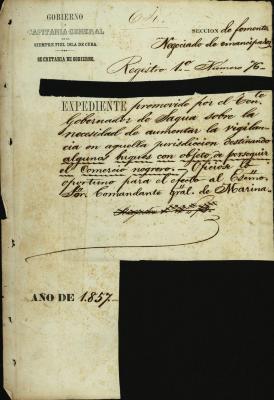 GOBIERNO
Y
CAPITANIA GENERAL
DE LA
SIEMPRE FIEL ISLA DE CUBA.
SECRETARIA DE GOBIERNO.
SECCION de fomento
Negociado de emancipados
Registro 1º Número 76
EXPEDIENTE promovido por el Ten.te
Gobernador de Sagua sobre la
necesidad de aumentar la vigilan-
cia en aquella jurisdiccion destinando
algunos buques con objeto, a perseguir
el Comercio negrero. Oficiar lo
oportuno para el efecto al Exsmo
Sor. Comandante Gral. de Marina.
AÑO DE 1857